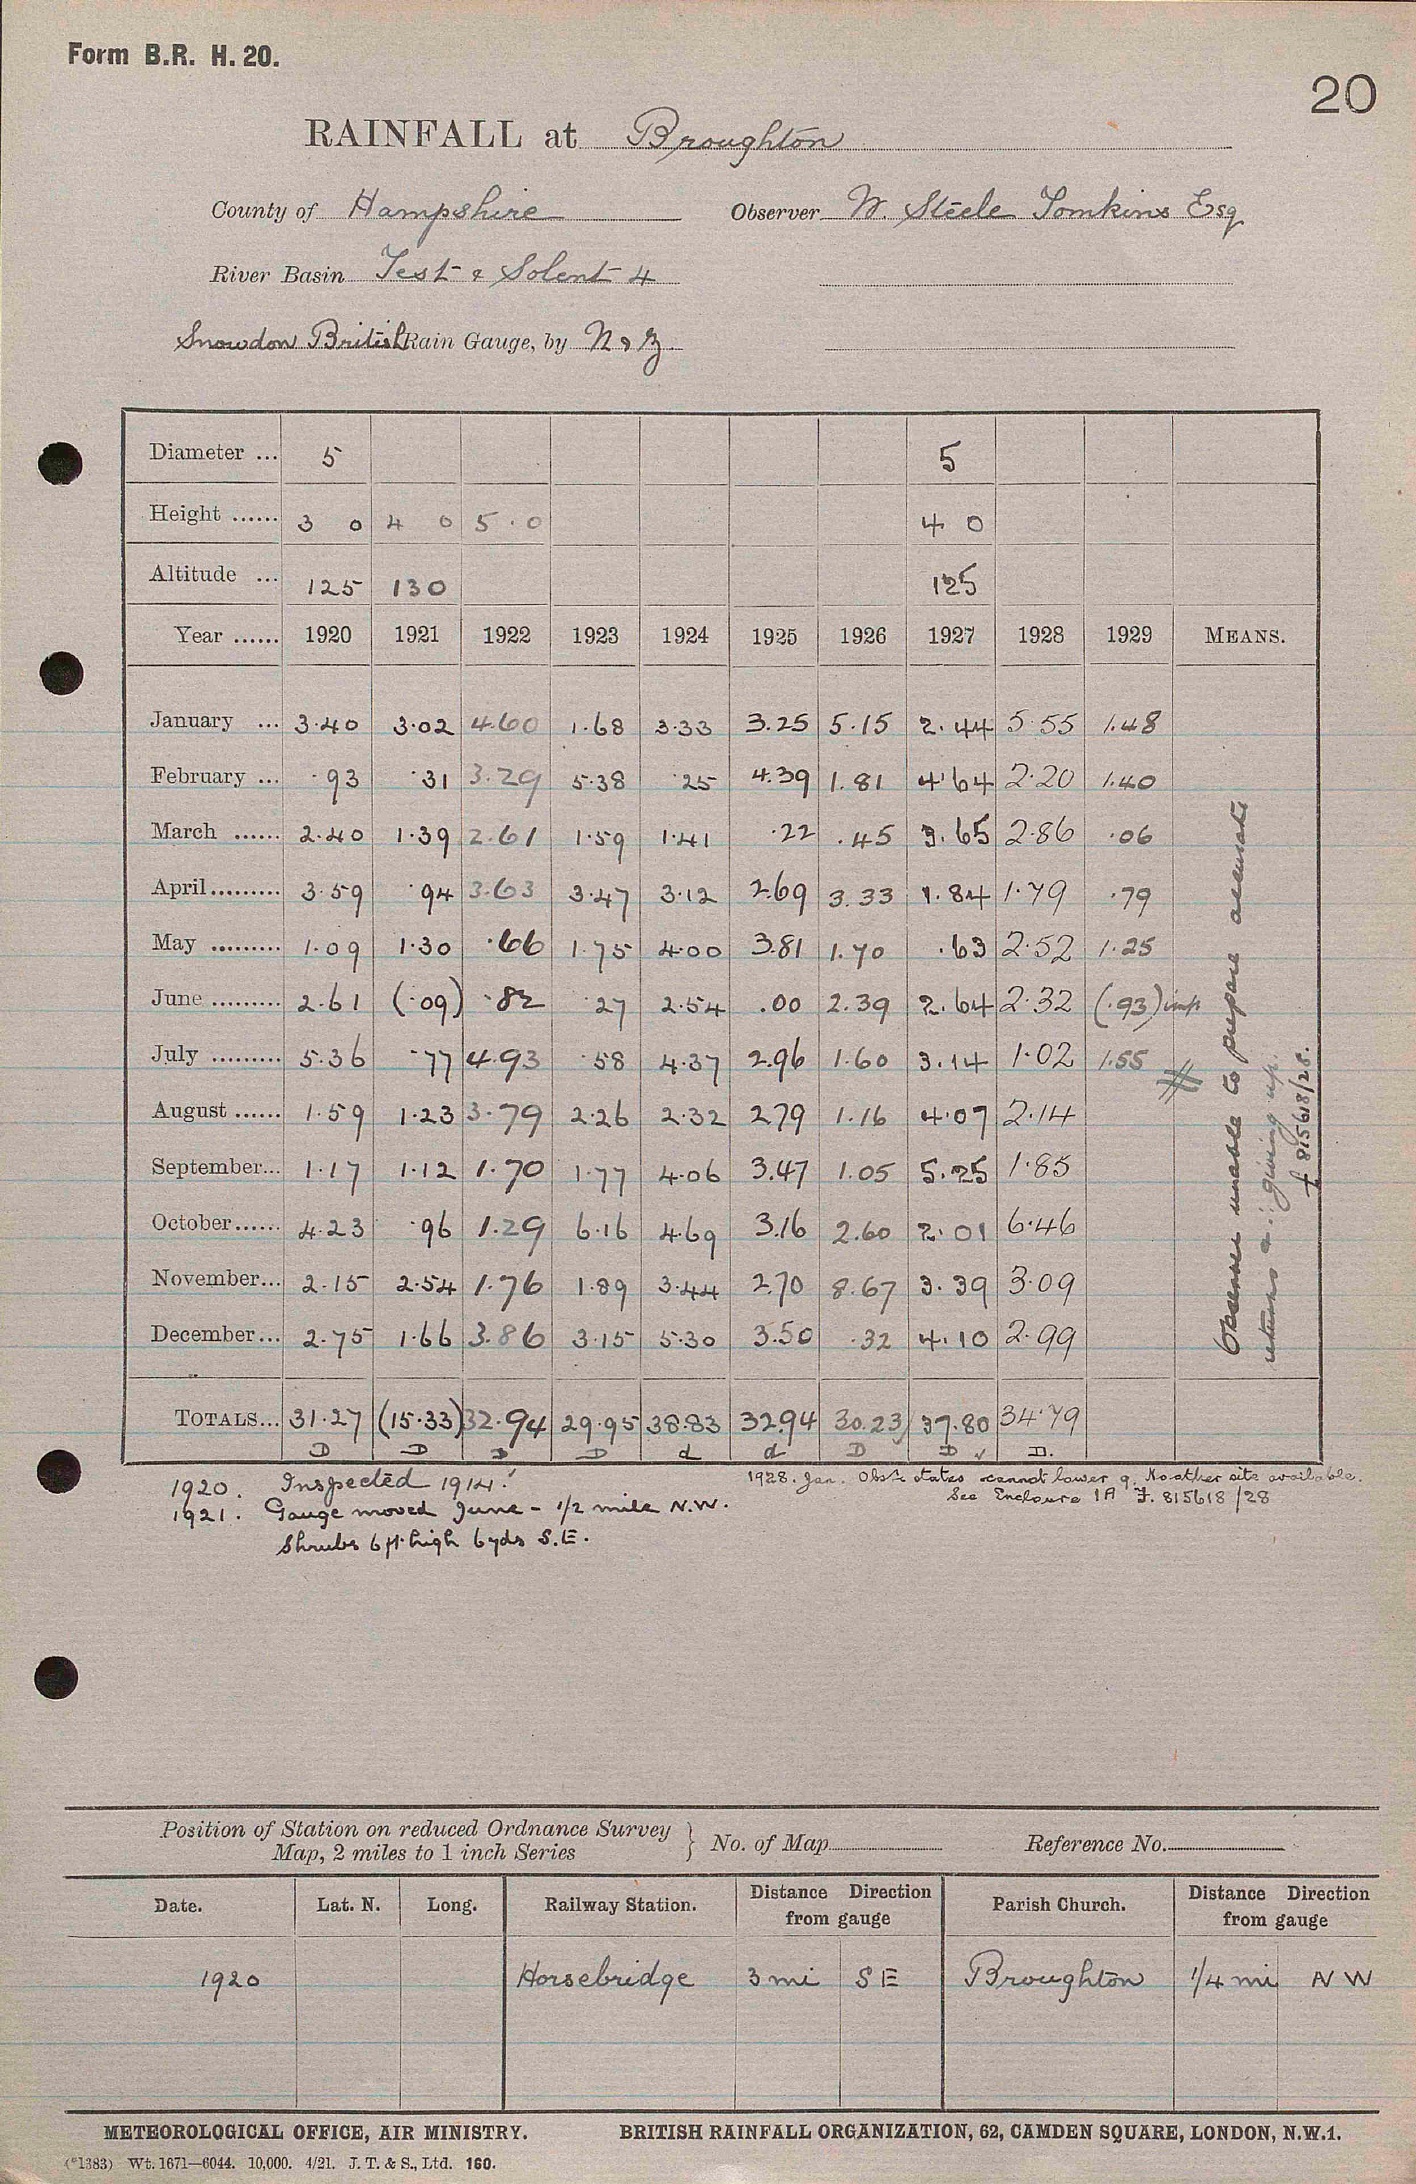 Form B.R. H. 20.
20
RAINFALL at Broughton
County of Hampshire Observer W. Steele Tomkins Esq
River Basin Test & Solent 4
Snowdon British Rain Gauge, by N & Z
Diameter ... 5 5
Height ...... 3 0 4 0 5.0 4 0
Altitude ... 125 130 125
Year ...... 1920 1921 1922 1923 1924 1925 1926 1927 1928 1929 MEANS.
January ... 3.40 3.02 4.60 1.68 3.33 3.25 5.15 2.44 5.55 1.48
February ... .93 .31 3.29 5.38 .25 4.39 1.81 4.64 2.20 1.40
March ...... 2.40 1.39 2.61 1.59 1.41 .22 .45 3.65 2.86 .06
April......... 3.59 .94 3.63 3.47 3.12 2.69 3.33 1.84 1.79 .79
May ......... 1.09 1.30 .66 1.75 4.00 3.81 1.70 .63 2.52 1.25
June ......... 2.61 (.09) .82 .27 2.54 .00 2.39 2.64 2.32 (.93) imp
July ......... 5.36 .77 4.93 .58 4.37 2.96 1.60 3.14 1.02 1.55 #
August ...... 1.59 1.23 3.79 2.26 2.32 2.79 1.16 4.07 2.14
September... 1.17 1.12 1.70 1.77 4.06 3.47 1.05 5.25 1.85
October...... 4.23 .96 1.29 6.16 4.69 3.16 2.60 2.01 6.46
November... 2.15 2.54 1.76 1.89 3.44 2.70 8.67 3.39 3.09
December... 2.75 1.66 3.86 3.15 5.30 3.50 .32 4.10 2.99
TOTALS... 31.27 (15.33) 32.94 29.95 38.83 32.94 30.23 37.80 34.79
D D D D d d D D ✓ D.
Observer unable to prepare accurate
returns & ∴ giving up.
f 815618/28.
1920. Inspected 1914!
1921. Gauge moved June - 1/2 mile N.W.
Shrubs 6 ft. high 6 yds S.E.
1928. Jan. Obsr. states cannot lower g. No other site available.
See Enclosure 1A F. 815618/28
Position of Station on reduced Ordnance Survey
Map, 2 miles to 1 inch Series } No. of Map Reference No.
Date. Lat. N. Long. Railway Station. Distance Direction from gauge Parish Church. Distance Direction from gauge
1920 Horsebridge 3 mi S E Broughton 1/4 mi N W
METEOROLOGICAL OFFICE, AIR MINISTRY. BRITISH RAINFALL ORGANIZATION, 62, CAMDEN SQUARE, LONDON, N.W.1.
(*1383) Wt. 1671—6044. 10,000. 4/21. J. T. & S., Ltd. 160.